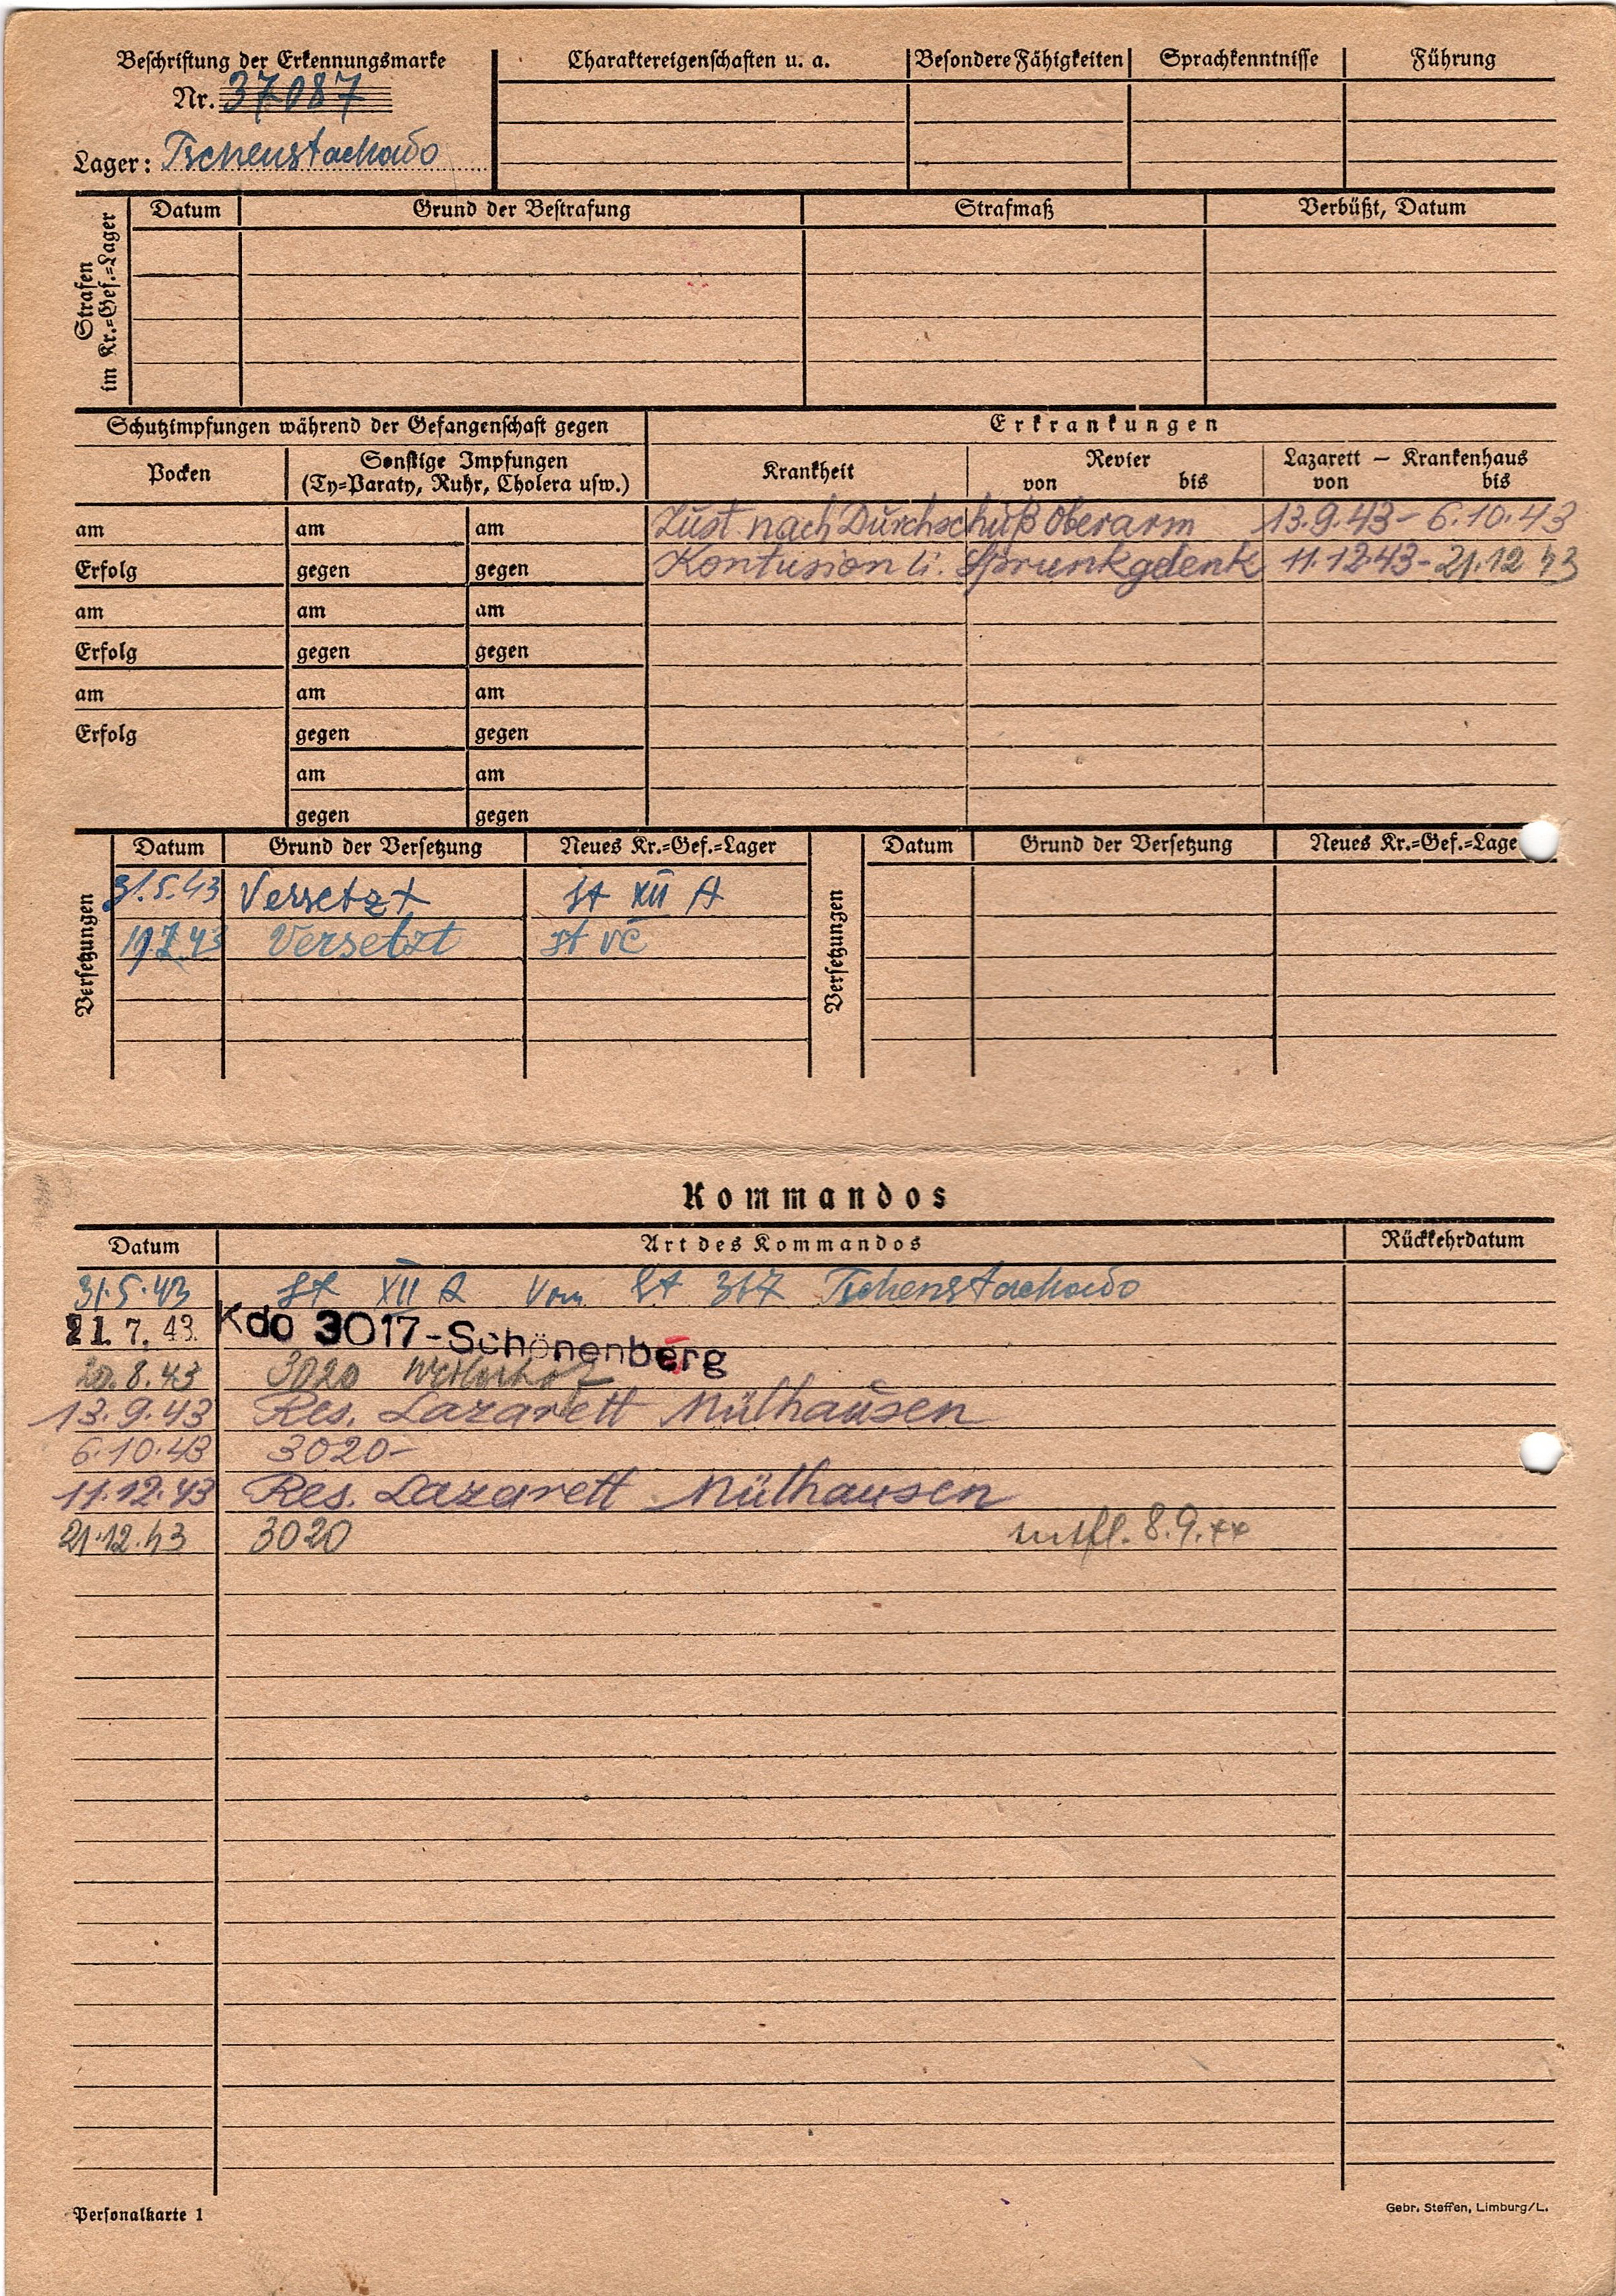 Beschriftung der Erkennungsmarke
Nr. 37087
Lager: Tschenstachado
Charaktereigenschaften u. a.
Besondere Fähigkeiten
Sprachkenntnisse
Führung
Strafen
im Kr.=Gef.=Lager
Datum
Grund der Bestrafung
Strafmaß
Verbüßt, Datum
Schutzimpfungen während der Gefangenschaft gegen
Erkrankungen
Pocken
Sonstige Impfungen
(Ty=Paraty, Ruhr, Cholera usw.)
Krankheit
Revier
von bis
Lazarett — Krankenhaus
von bis
am am am Zust. nach Durchschuß Oberarm 13.9.43 - 6.10.43
Erfolg gegen gegen Kontusion li. Sprunkgelenk 11.12.43 - 21.12.43
am am am
Erfolg gegen gegen
am am am
Erfolg gegen gegen
am am
gegen gegen
Versetzungen
Datum Grund der Versetzung Neues Kr.=Gef.=Lager
31.5.43 Versetzt St XII A
19.7.43 Versetzt St VC
Versetzungen
Datum Grund der Versetzung Neues Kr.=Gef.=Lage
Kommandos
Datum Art des Kommandos Rückkehrdatum
31.5.43 St XII A Vom St 367 Tschenstachado
21. 7. 43. Kdo 3017-Schönenberg
20.8.43 3020
13.9.43 Res. Lazarett Mülhausen
6.10.43 3020-
11.12.43 Res. Lazarett Mülhausen
21.12.43 3020 entfl. 8.9.44
Personalkarte 1
Gebr. Steffen, Limburg/L.